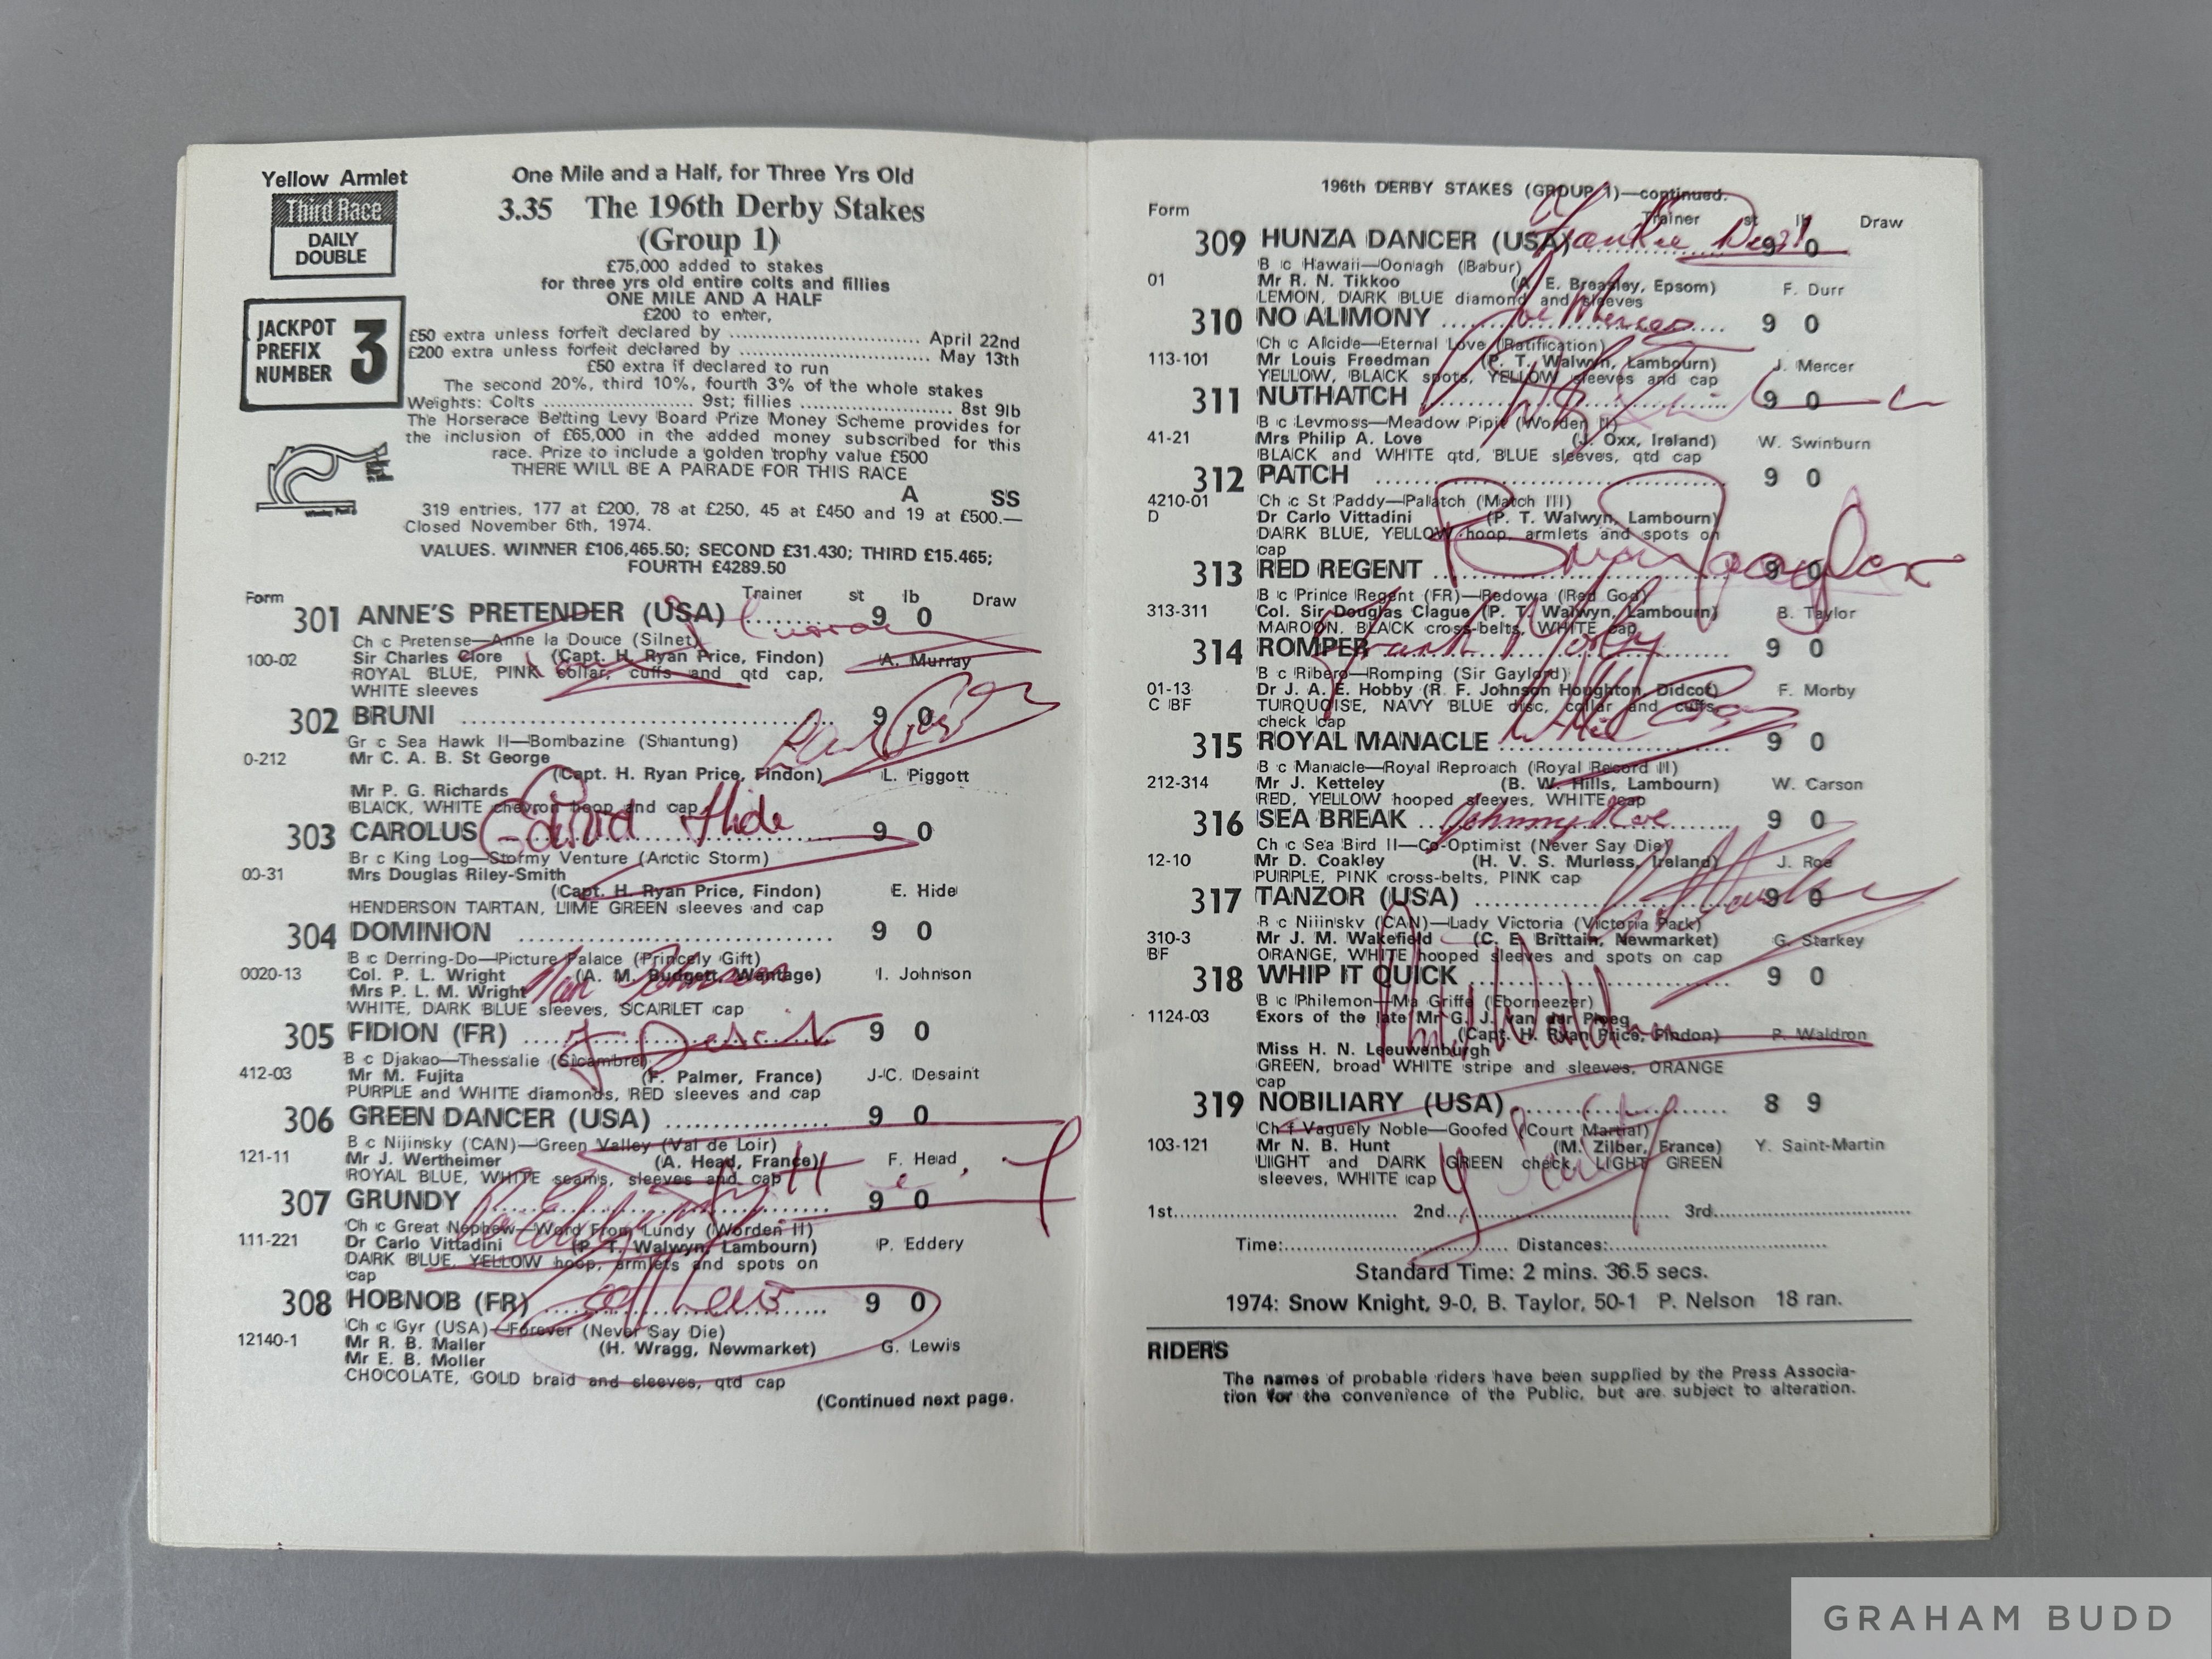 Yellow Armlet
Third Race
DAILY
DOUBLE
JACKPOT
PREFIX
NUMBER
3
One Mile and a Half, for Three Yrs Old
3.35 The 196th Derby Stakes
(Group 1)
£75,000 added to stakes
for three yrs old entire colts and fillies
ONE MILE AND A HALF
£200 to enter,
£50 extra unless forfeit declared by .............................. April 22nd
£200 extra unless forfeit declared by .............................. May 13th
£50 extra if declared to run
The second 20%, third 10%, fourth 3% of the whole stakes
Weights: Colts ........................ 9st; fillies ........................ 8st 9lb
The Horserace Betting Levy Board Prize Money Scheme provides for
the inclusion of £65,000 in the added money subscribed for this
race. Prize to include a golden trophy value £500
THERE WILL BE A PARADE FOR THIS RACE
A SS
319 entries, 177 at £200, 78 at £250, 45 at £450 and 19 at £500.—
Closed November 6th, 1974.
VALUES. WINNER £106,465.50; SECOND £31.430; THIRD £15.465;
FOURTH £4289.50
Form Trainer st lb Draw
301 ANNE'S PRETENDER (USA) ......... 9 0
Ch c Pretense—Anne la Douce (Silnet)
100-02 Sir Charles Clore (Capt. H. Ryan Price, Findon) A. Murray
ROYAL BLUE, PINK collar, cuffs and qtd cap,
WHITE sleeves
302 BRUNI ........................ 9 0
Gr c Sea Hawk II—Bombazine (Shantung)
0-212 Mr C. A. B. St George
(Capt. H. Ryan Price, Findon) L. Piggott
Mr P. G. Richards
BLACK, WHITE chevron hoop and cap
303 CAROLUS Edward Hide 9 0
Br c King Log—Stormy Venture (Arctic Storm)
00-31 Mrs Douglas Riley-Smith
(Capt. H. Ryan Price, Findon) E. Hide
HENDERSON TARTAN, LIME GREEN sleeves and cap
304 DOMINION ........................ 9 0
B c Derring-Do—Picture Palace (Princely Gift)
0020-13 Col. P. L. Wright (A. M. Budgett, Wantage) I. Johnson
Mrs P. L. M. Wright
WHITE, DARK BLUE sleeves, SCARLET cap
305 FIDION (FR) ........................ 9 0
B c Djakao—Thessalie (Sicambre)
412-03 Mr M. Fujita (F. Palmer, France) J-C. Desaint
PURPLE and WHITE diamonds, RED sleeves and cap
306 GREEN DANCER (USA) .................. 9 0
B c Nijinsky (CAN)—Green Valley (Val de Loir)
121-11 Mr J. Wertheimer (A. Head, France) F. Head
ROYAL BLUE, WHITE seams, sleeves and cap
307 GRUNDY ........................ 9 0
Ch c Great Nephew—Word From Lundy (Worden II)
111-221 Dr Carlo Vittadini (P. T. Walwyn, Lambourn) P. Eddery
DARK BLUE, YELLOW hoop, armlets and spots on
cap
308 HOBNOB (FR) ........................ 9 0
Ch c Gyr (USA)—Forever (Never Say Die)
12140-1 Mr R. B. Maller (H. Wragg, Newmarket) G. Lewis
Mr E. B. Moller
CHOCOLATE, GOLD braid and sleeves, qtd cap
(Continued next page.
196th DERBY STAKES (GROUP 1)—continued.
Form Trainer st lb Draw
309 HUNZA DANCER (USA) ......... 9 0
B c Hawaii—Oonagh (Babur)
01 Mr R. N. Tikkoo (A. E. Breasley, Epsom) F. Durr
LEMON, DARK BLUE diamond and sleeves
310 NO ALIMONY ........ Joe Mercer .... 9 0
Ch c Alcide—Eternal Love (Ratification)
113-101 Mr Louis Freedman (P. T. Walwyn, Lambourn) J. Mercer
YELLOW, BLACK spots, YELLOW sleeves and cap
311 NUTHATCH ........................ 9 0
B c Levmoss—Meadow Pipit (Worden II)
41-21 Mrs Philip A. Love (J. Oxx, Ireland) W. Swinburn
BLACK and WHITE qtd, BLUE sleeves, qtd cap
312 PATCH ........................ 9 0
4210-01 Ch c St Paddy—Palatch (Match III)
D Dr Carlo Vittadini (P. T. Walwyn, Lambourn)
DARK BLUE, YELLOW hoop, armlets and spots on
cap
313 RED REGENT ........................ 9 0
B c Prince Regent (FR)—Redowa (Red God)
313-311 Col. Sir Douglas Clague (P. T. Walwyn, Lambourn) B. Taylor
MAROON, BLACK cross-belts, WHITE cap
314 ROMPER Frank Morby 9 0
B c Ribero—Romping (Sir Gaylord)
01-13 Dr J. A. E. Hobby (R. F. Johnson Houghton, Didcot) F. Morby
C BF TURQUOISE, NAVY BLUE disc, collar and cuffs,
check cap
315 ROYAL MANACLE ........................ 9 0
B c Manacle—Royal Reproach (Royal Record II)
212-314 Mr J. Ketteley (B. W. Hills, Lambourn) W. Carson
RED, YELLOW hooped sleeves, WHITE cap
316 SEA BREAK .. Johnny Roe ....... 9 0
Ch c Sea Bird II—Co-Optimist (Never Say Die)
12-10 Mr D. Coakley (H. V. S. Murless, Ireland) J. Roe
PURPLE, PINK cross-belts, PINK cap
317 TANZOR (USA) ........................ 9 0
B c Nijinsky (CAN)—Lady Victoria (Victoria Park)
310-3 Mr J. M. Wakefield (C. E. Brittain, Newmarket) G. Starkey
BF ORANGE, WHITE hooped sleeves and spots on cap
318 WHIP IT QUICK ........................ 9 0
B c Philemon—Ma Griffe (Eborneezer)
1124-03 Exors of the late Mr G. J. van der Ploeg
(Capt. H. Ryan Price, Findon) P. Waldron
Miss H. N. Leeuwenburgh
GREEN, broad WHITE stripe and sleeves, ORANGE
cap
319 NOBILIARY (USA) ........................ 8 9
Ch f Vaguely Noble—Goofed (Court Martial)
103-121 Mr N. B. Hunt (M. Zilber, France) Y. Saint-Martin
LIGHT and DARK GREEN check, LIGHT GREEN
sleeves, WHITE cap
1st.............................. 2nd.............................. 3rd..............................
Time:.............................. Distances:..............................
Standard Time: 2 mins. 36.5 secs.
1974: Snow Knight, 9-0, B. Taylor, 50-1 P. Nelson 18 ran.
RIDERS
The names of probable riders have been supplied by the Press Associa-
tion for the convenience of the Public, but are subject to alteration.
GRAHAM BUDD